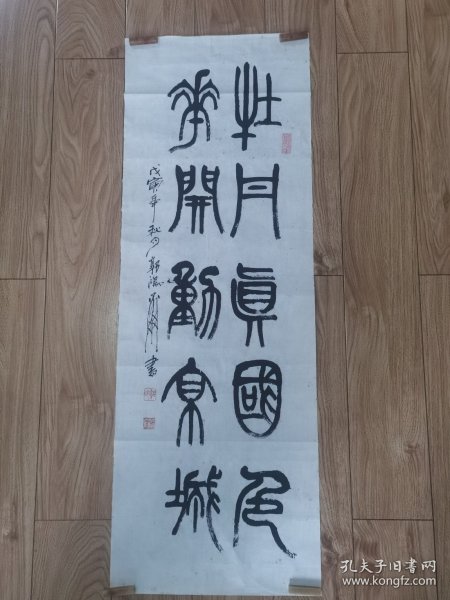 牡丹真國色
華開動京城
戊寅年秋月
書
孔夫子旧书网
www.kongfz.com